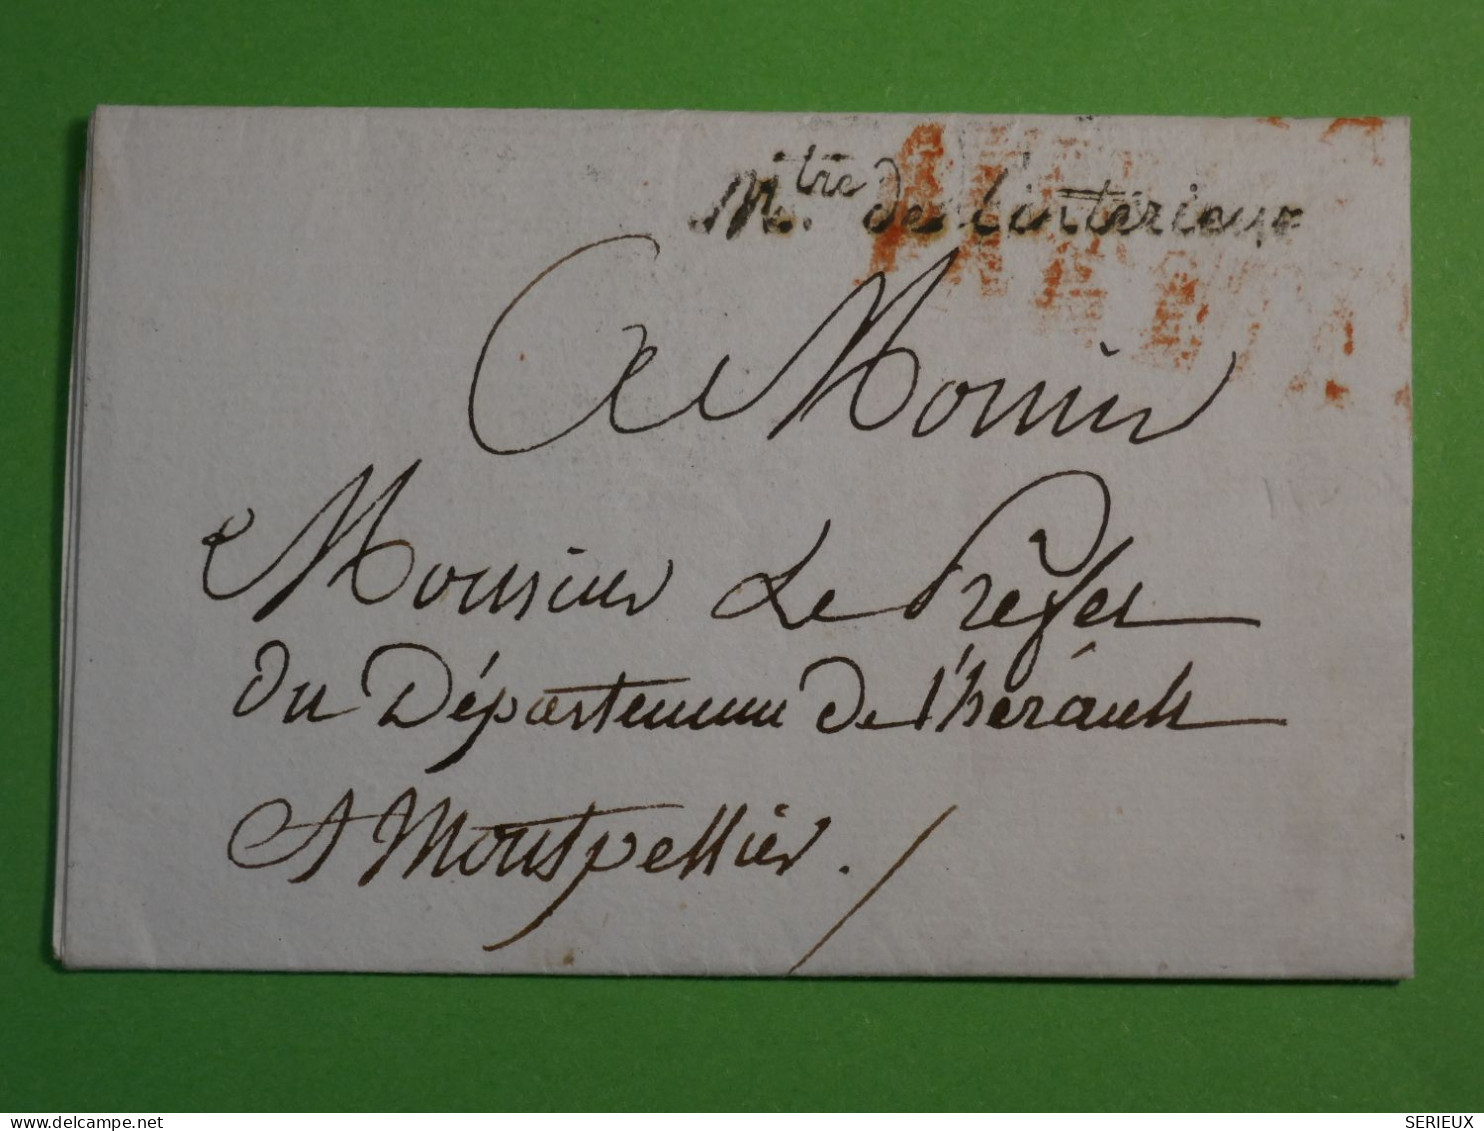 Mtre. de l'intérieur
A Monsieur
Monsieur Le Préfet
Du Département De l'hérault
A Montpellier.
SERIEUX